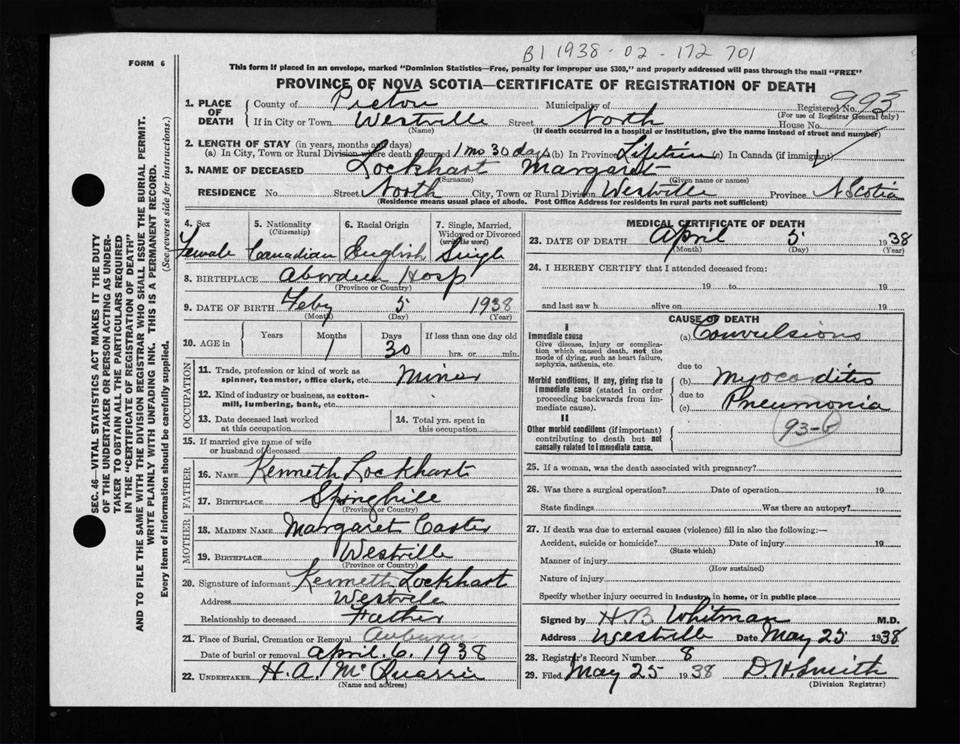 B1 1938-02-172701
FORM 6
This form if placed in an envelope, marked "Dominion Statistics—Free, penalty for improper use $300," and properly addressed will pass through the mail "FREE"
PROVINCE OF NOVA SCOTIA—CERTIFICATE OF REGISTRATION OF DEATH
1. PLACE OF DEATH
County of Pictou Municipality of Registered No. 993
(For use of Registrar General only)
If in City or Town Westville Street North House No.
(Name) (If death occurred in a hospital or institution, give the name instead of street and number)
2. LENGTH OF STAY (in years, months and days)
(a) In City, Town or Rural Division where death occurred 1 mo 30 days (b) In Province Lifetime (c) In Canada (if immigrant)
3. NAME OF DECEASED Lockhart Margaret
(Surname) (Given name or names)
RESIDENCE No. Street North City, Town or Rural Division Westville Province N Scotia
(Residence means usual place of abode. Post Office Address for residents in rural parts not sufficient)
4. Sex Female
5. Nationality (Citizenship) Canadian
6. Racial Origin English
7. Single, Married, Widowed or Divorced (write the word) Single
8. BIRTHPLACE Aberdeen Hosp
(Province or Country)
9. DATE OF BIRTH Feby 5 1938
(Month) (Day) (Year)
10. AGE in Years Months 1 Days 30 If less than one day old hrs. or min.
OCCUPATION
11. Trade, profession or kind of work as spinner, teamster, office clerk, etc. Minor
12. Kind of industry or business, as cotton-mill, lumbering, bank, etc.
13. Date deceased last worked at this occupation
14. Total yrs. spent in this occupation
15. If married give name of wife or husband of deceased
FATHER
16. NAME Kenneth Lockhart
17. BIRTHPLACE Springhill
(Province or Country)
MOTHER
18. MAIDEN NAME Margaret
19. BIRTHPLACE Westville
(Province or Country)
20. Signature of informant Kenneth Lockhart
Address Westville
Relationship to deceased Father
21. Place of Burial, Cremation or Removal Auburn
Date of burial or removal April 6, 1938
22. UNDERTAKER H. A. McQuarrie
(Name and address)
MEDICAL CERTIFICATE OF DEATH
23. DATE OF DEATH April 5 1938
(Month) (Day) (Year)
24. I HEREBY CERTIFY that I attended deceased from:
19 to 19
and last saw h alive on 19
CAUSE OF DEATH
I
Immediate cause
Give disease, injury or complication which caused death, not the mode of dying, such as heart failure, asphyxia, asthenia, etc.
(a) Convulsions
due to
Morbid conditions, if any, giving rise to immediate cause (stated in order proceeding backwards from immediate cause).
(b) Myocarditis
due to
(c) Pneumonia
93-
II
Other morbid conditions (if important) contributing to death but not causally related to immediate cause.
25. If a woman, was the death associated with pregnancy?
26. Was there a surgical operation? Date of operation 19
State findings Was there an autopsy?
27. If death was due to external causes (violence) fill in also the following:—
Accident, suicide or homicide? Date of injury 19
(State which)
Manner of injury
(How sustained)
Nature of injury
Specify whether injury occurred in industry, in home, or in public place
Signed by H B Whitman M.D.
Address Westville Date May 25 1938
28. Registrar's Record Number 8
29. Filed May 25 1938 D. H. Smith
(Division Registrar)
SEC. 46—VITAL STATISTICS ACT MAKES IT THE DUTY
OF THE UNDERTAKER OR PERSON ACTING AS UNDER-
TAKER TO OBTAIN ALL THE PARTICULARS REQUIRED
IN THE "CERTIFICATE OF REGISTRATION OF DEATH"
AND TO FILE THE SAME WITH THE DIVISION REGISTRAR WHO SHALL ISSUE THE BURIAL PERMIT.
WRITE PLAINLY WITH UNFADING INK. THIS IS A PERMANENT RECORD.
Every item of information should be carefully supplied. (See reverse side for instructions.)